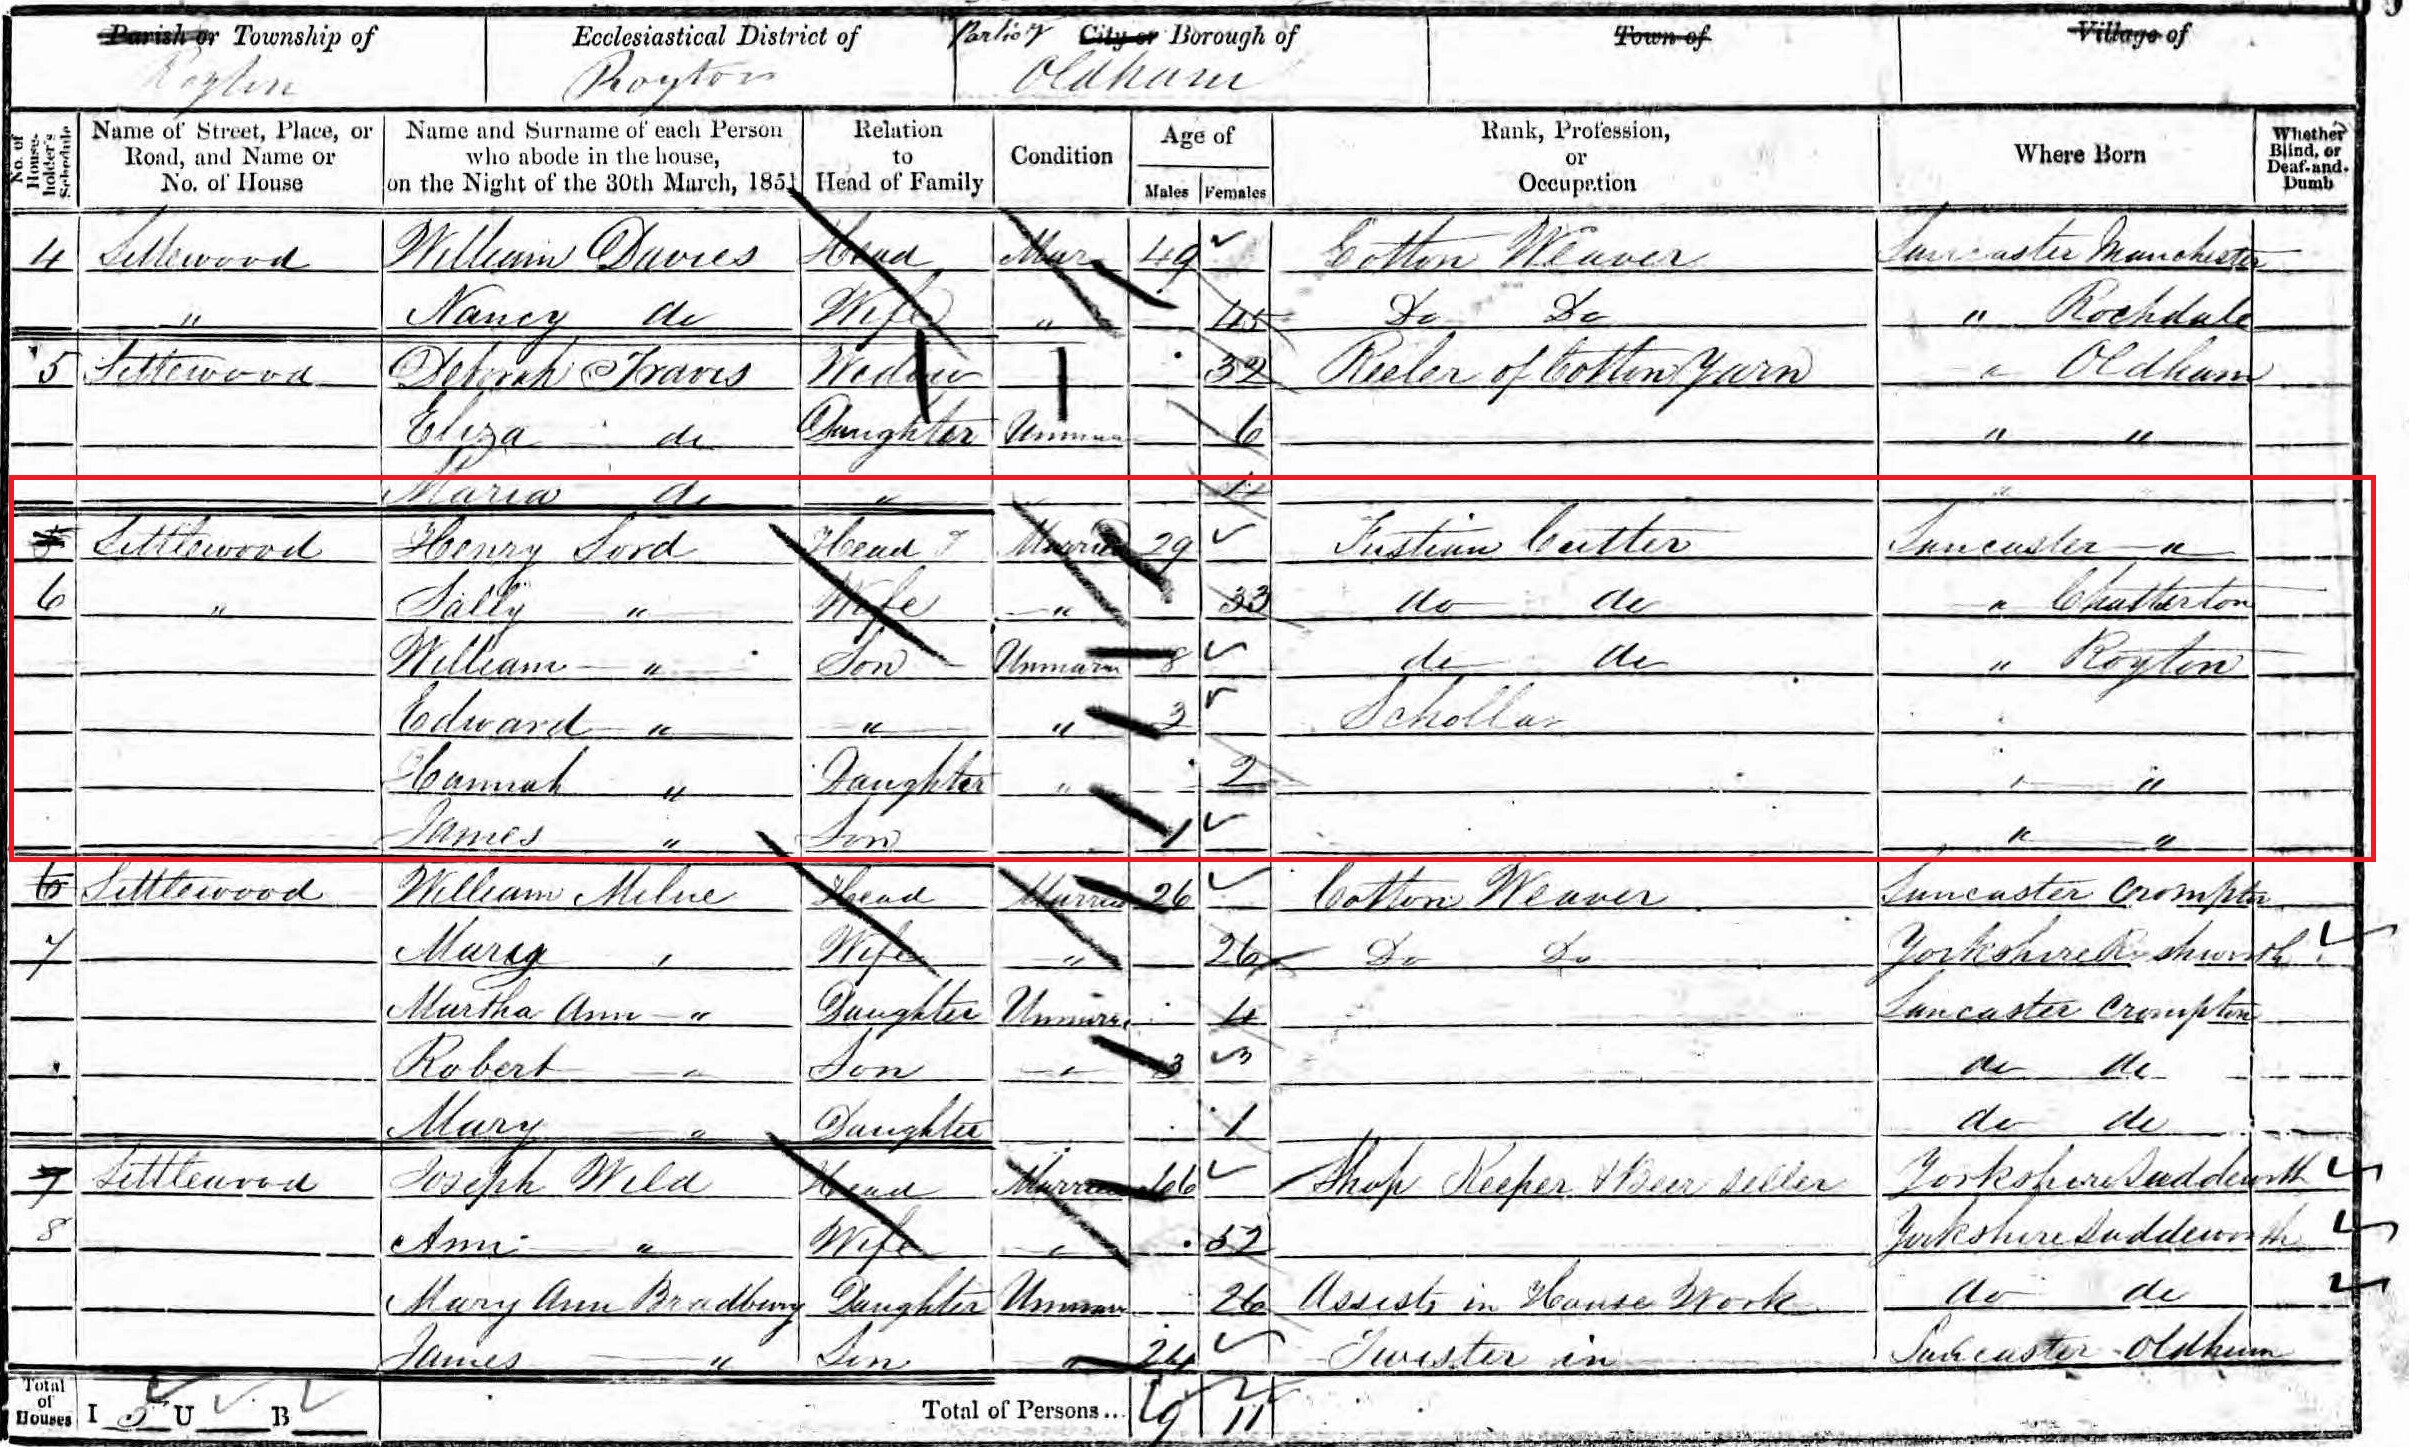 Parish or Township of Ecclesiastical District of Part of City or Borough of Town of Village of
Royton Royton Oldham
No. of House-holder's Schedule Name of Street, Place, or Road, and Name or No. of House Name and Surname of each Person who abode in the house, on the Night of the 30th March, 1851 Relation to Head of Family Condition Age of Males Females Rank, Profession, or Occupation Where Born Whether Blind, or Deaf-and-Dumb
4 Littlewood William Davies Head Mar 49 Cotton Weaver Lancaster Manchester
" Nancy do Wife " 45 Do Do " Rochdale
5 Littlewood Deborah Travis Wedow 32 Reeler of Cotton Yarn " Oldham
Eliza do Daughter Unmar 6 " "
Maria do " "
5 Littlewood Henry Lord Head Married 29 Fustian Cutter Lancaster "
6 " Sally " Wife " 33 do do " Chatterton
William " Son Unmarr 8 do do " Royton
Edward " " " 3 Schollar
Hannah " Daughter " 2 " "
James " Son 1 " "
6 Littlewood William Milne Head Married 26 Cotton Weaver Lancaster Crompton
7 Mary " Wife " 26 Do Do Yorkshire Rishworth
Martha Ann " Daughter Unmarr 4 Lancaster Crompton
Robert " Son " 3 do do
Mary " Daughter 1 do do
7 Littlewood Joseph Wild Head Married 66 Shop Keeper & Beer Seller Yorkshire Saddleworth
8 Ann " Wife " 52 Yorkshire Saddleworth
Mary Ann Bradbury Daughter Unmarr 26 Assists in House Work do do
James " Son " 24 Twister in Lancaster Oldham
Total of Houses I 5 U B Total of Persons... 9 11